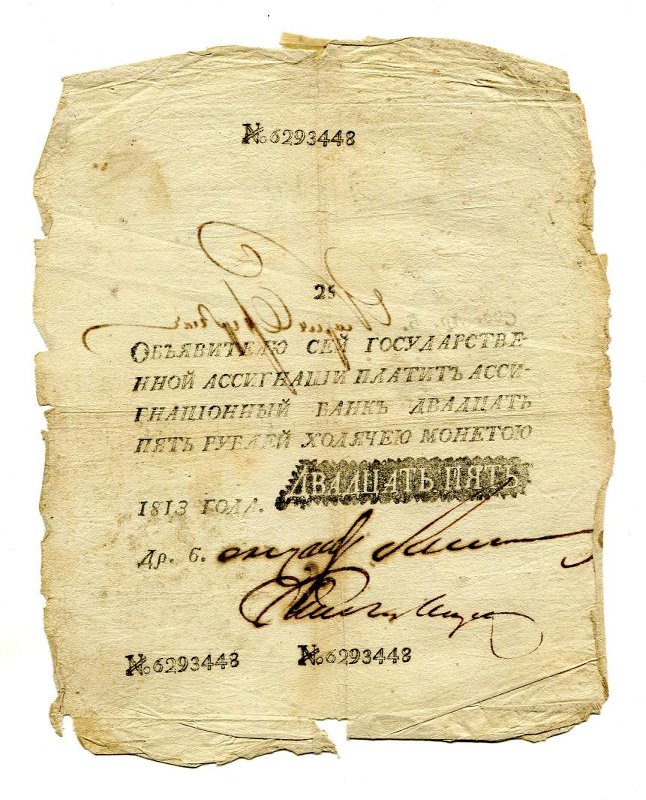 №6293448
25
ОБЪЯВИТЕЛЮ СЕЙ ГОСУДАРСТВЕ-
ННОЙ АССИГНАЦІИ ПЛАТИТЪ АССИ-
ГНАЦІОННЫЙ БАНКЪ ДВАДЦАТЬ
ПЯТЬ РУБЛЕЙ ХОДЯЧЕЮ МОНЕТОЮ
1813 ГОДА.
ДВАДЦАТЬ ПЯТЬ
Др. 6.
№6293448 №6293448